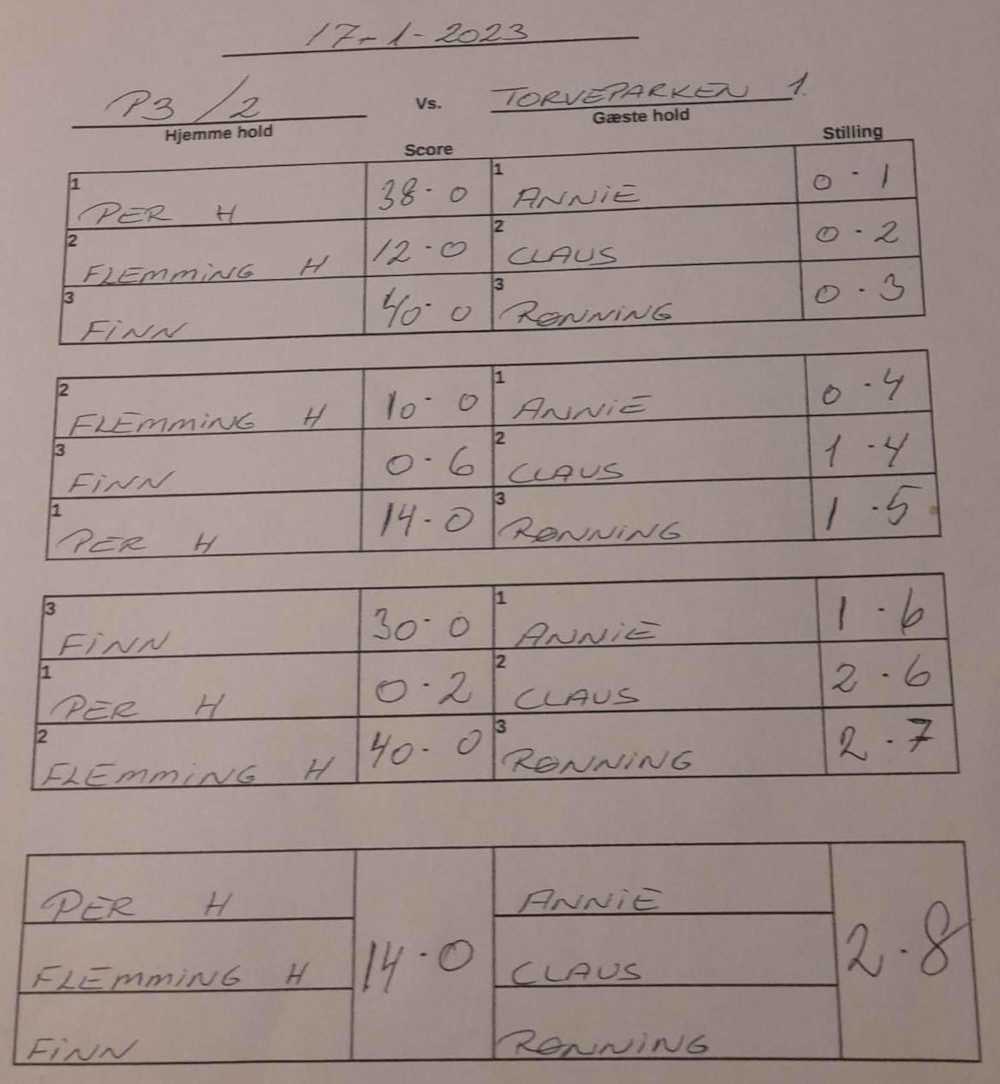 17-1-2023
P3/2 Vs. TORVEPARKEN 1.
Hjemme hold Gæste hold
Score Stilling
1 PER H 38-0 1 ANNIE 0-1
2 FLEMMING H 12-0 2 CLAUS 0-2
3 FINN 40-0 3 RØNNING 0-3
2 FLEMMING H 10-0 1 ANNIE 0-4
3 FINN 0-6 2 CLAUS 1-4
1 PER H 14-0 3 RØNNING 1-5
3 FINN 30-0 1 ANNIE 1-6
1 PER H 0-2 2 CLAUS 2-6
2 FLEMMING H 40-0 3 RØNNING 2-7
PER H ANNIE
FLEMMING H 14-0 CLAUS 2-8
FINN RØNNING